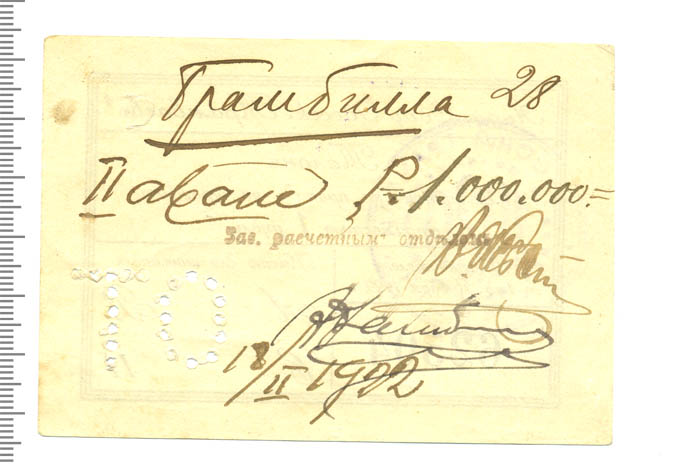 Брамбилла 28
II аванс Р. 1.000.000.=
Зав. расчетным отделом
ТО
18/II 1922